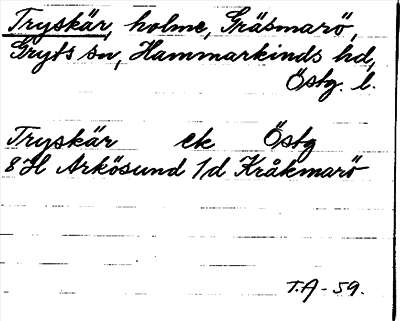 Tryskär, holme, Gräsmarö,
Gryts sn, Hammarkinds hd,
Östg. l.
Tryskär ek Östg
8H Arkösund 1d Kråkmarö
T.A - 59.